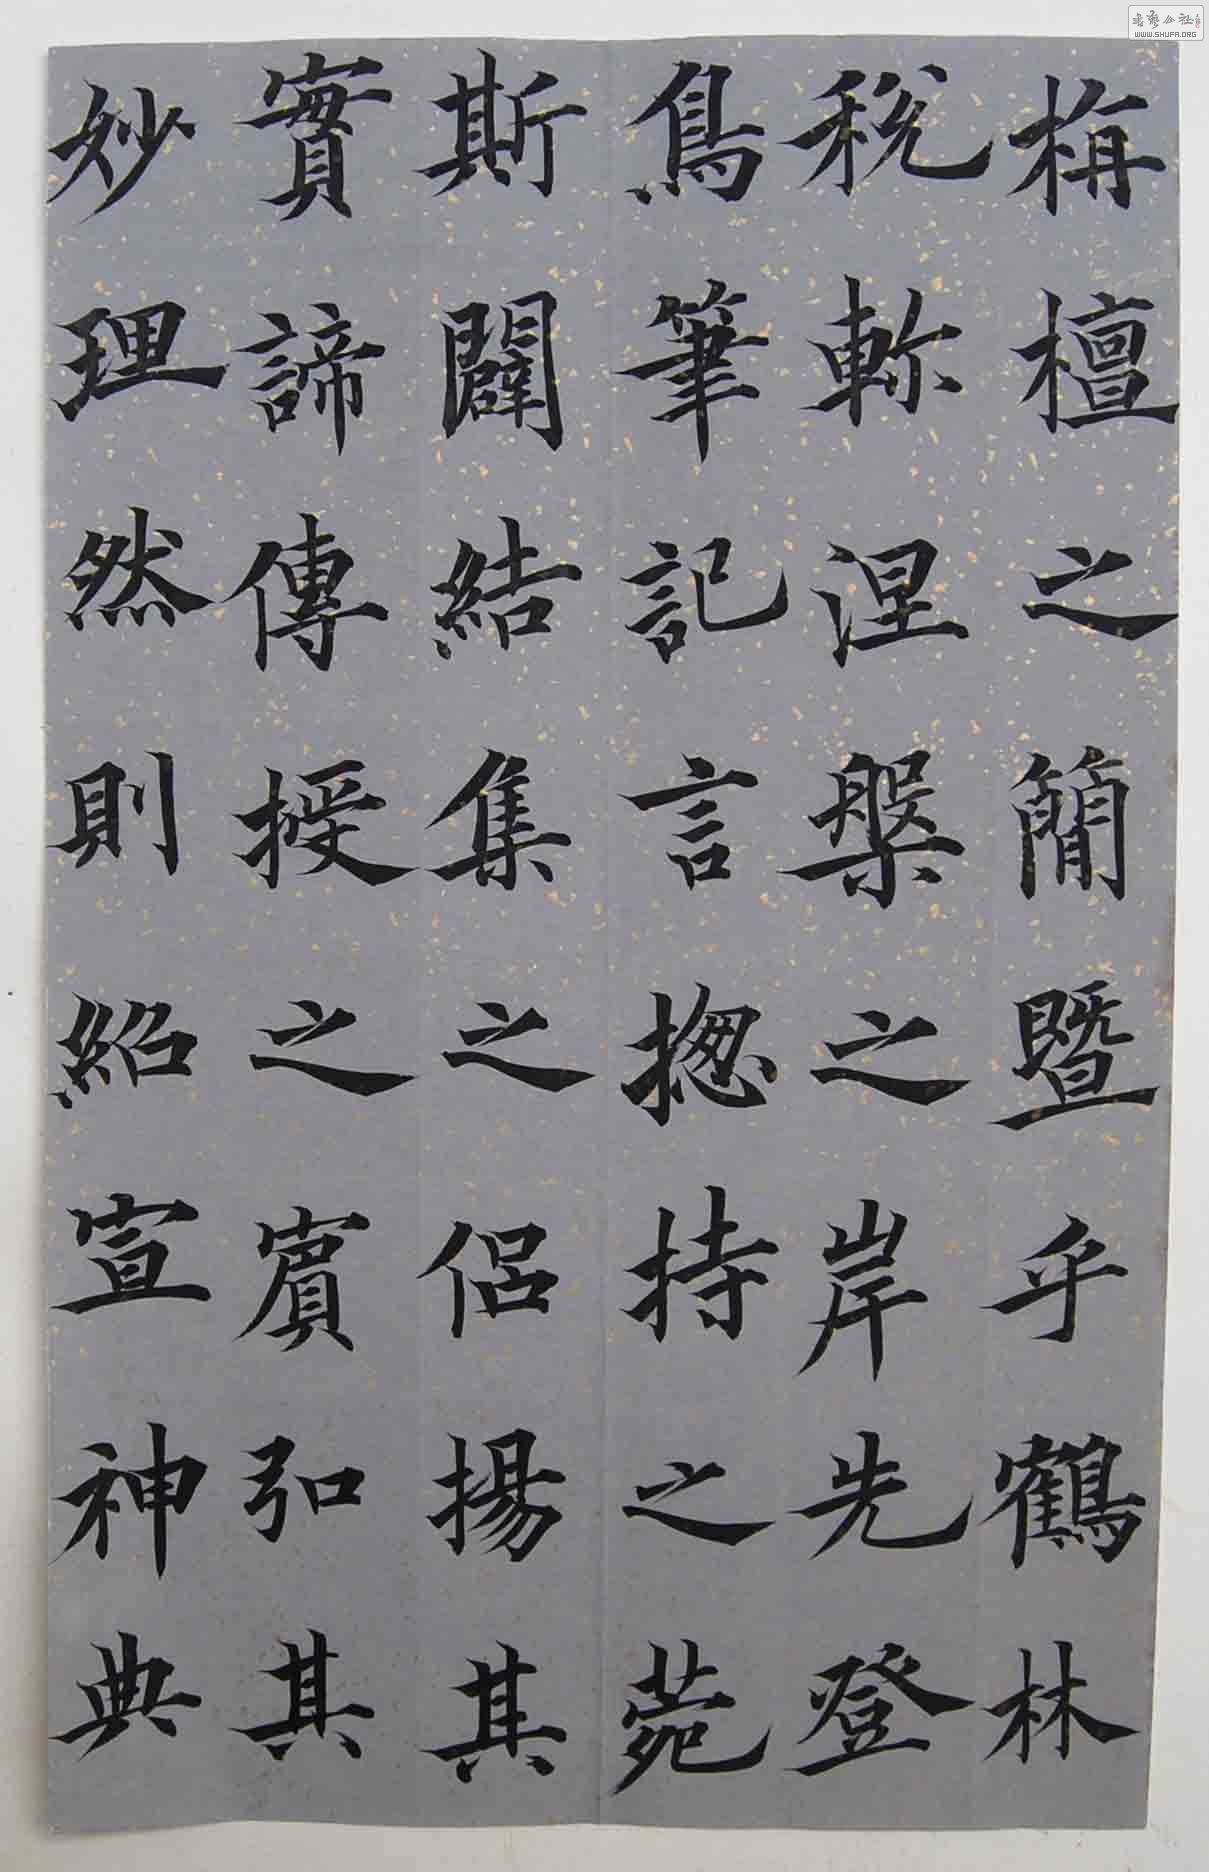 栴檀之簡暨乎鶴林
稅軫涅槃之岸先登
鳥筆記言揔持之菀
斯闢結集之侶揚其
實諦傳授之賓弘其
妙理然則紹宣神典
WWW.SHUFA.ORG